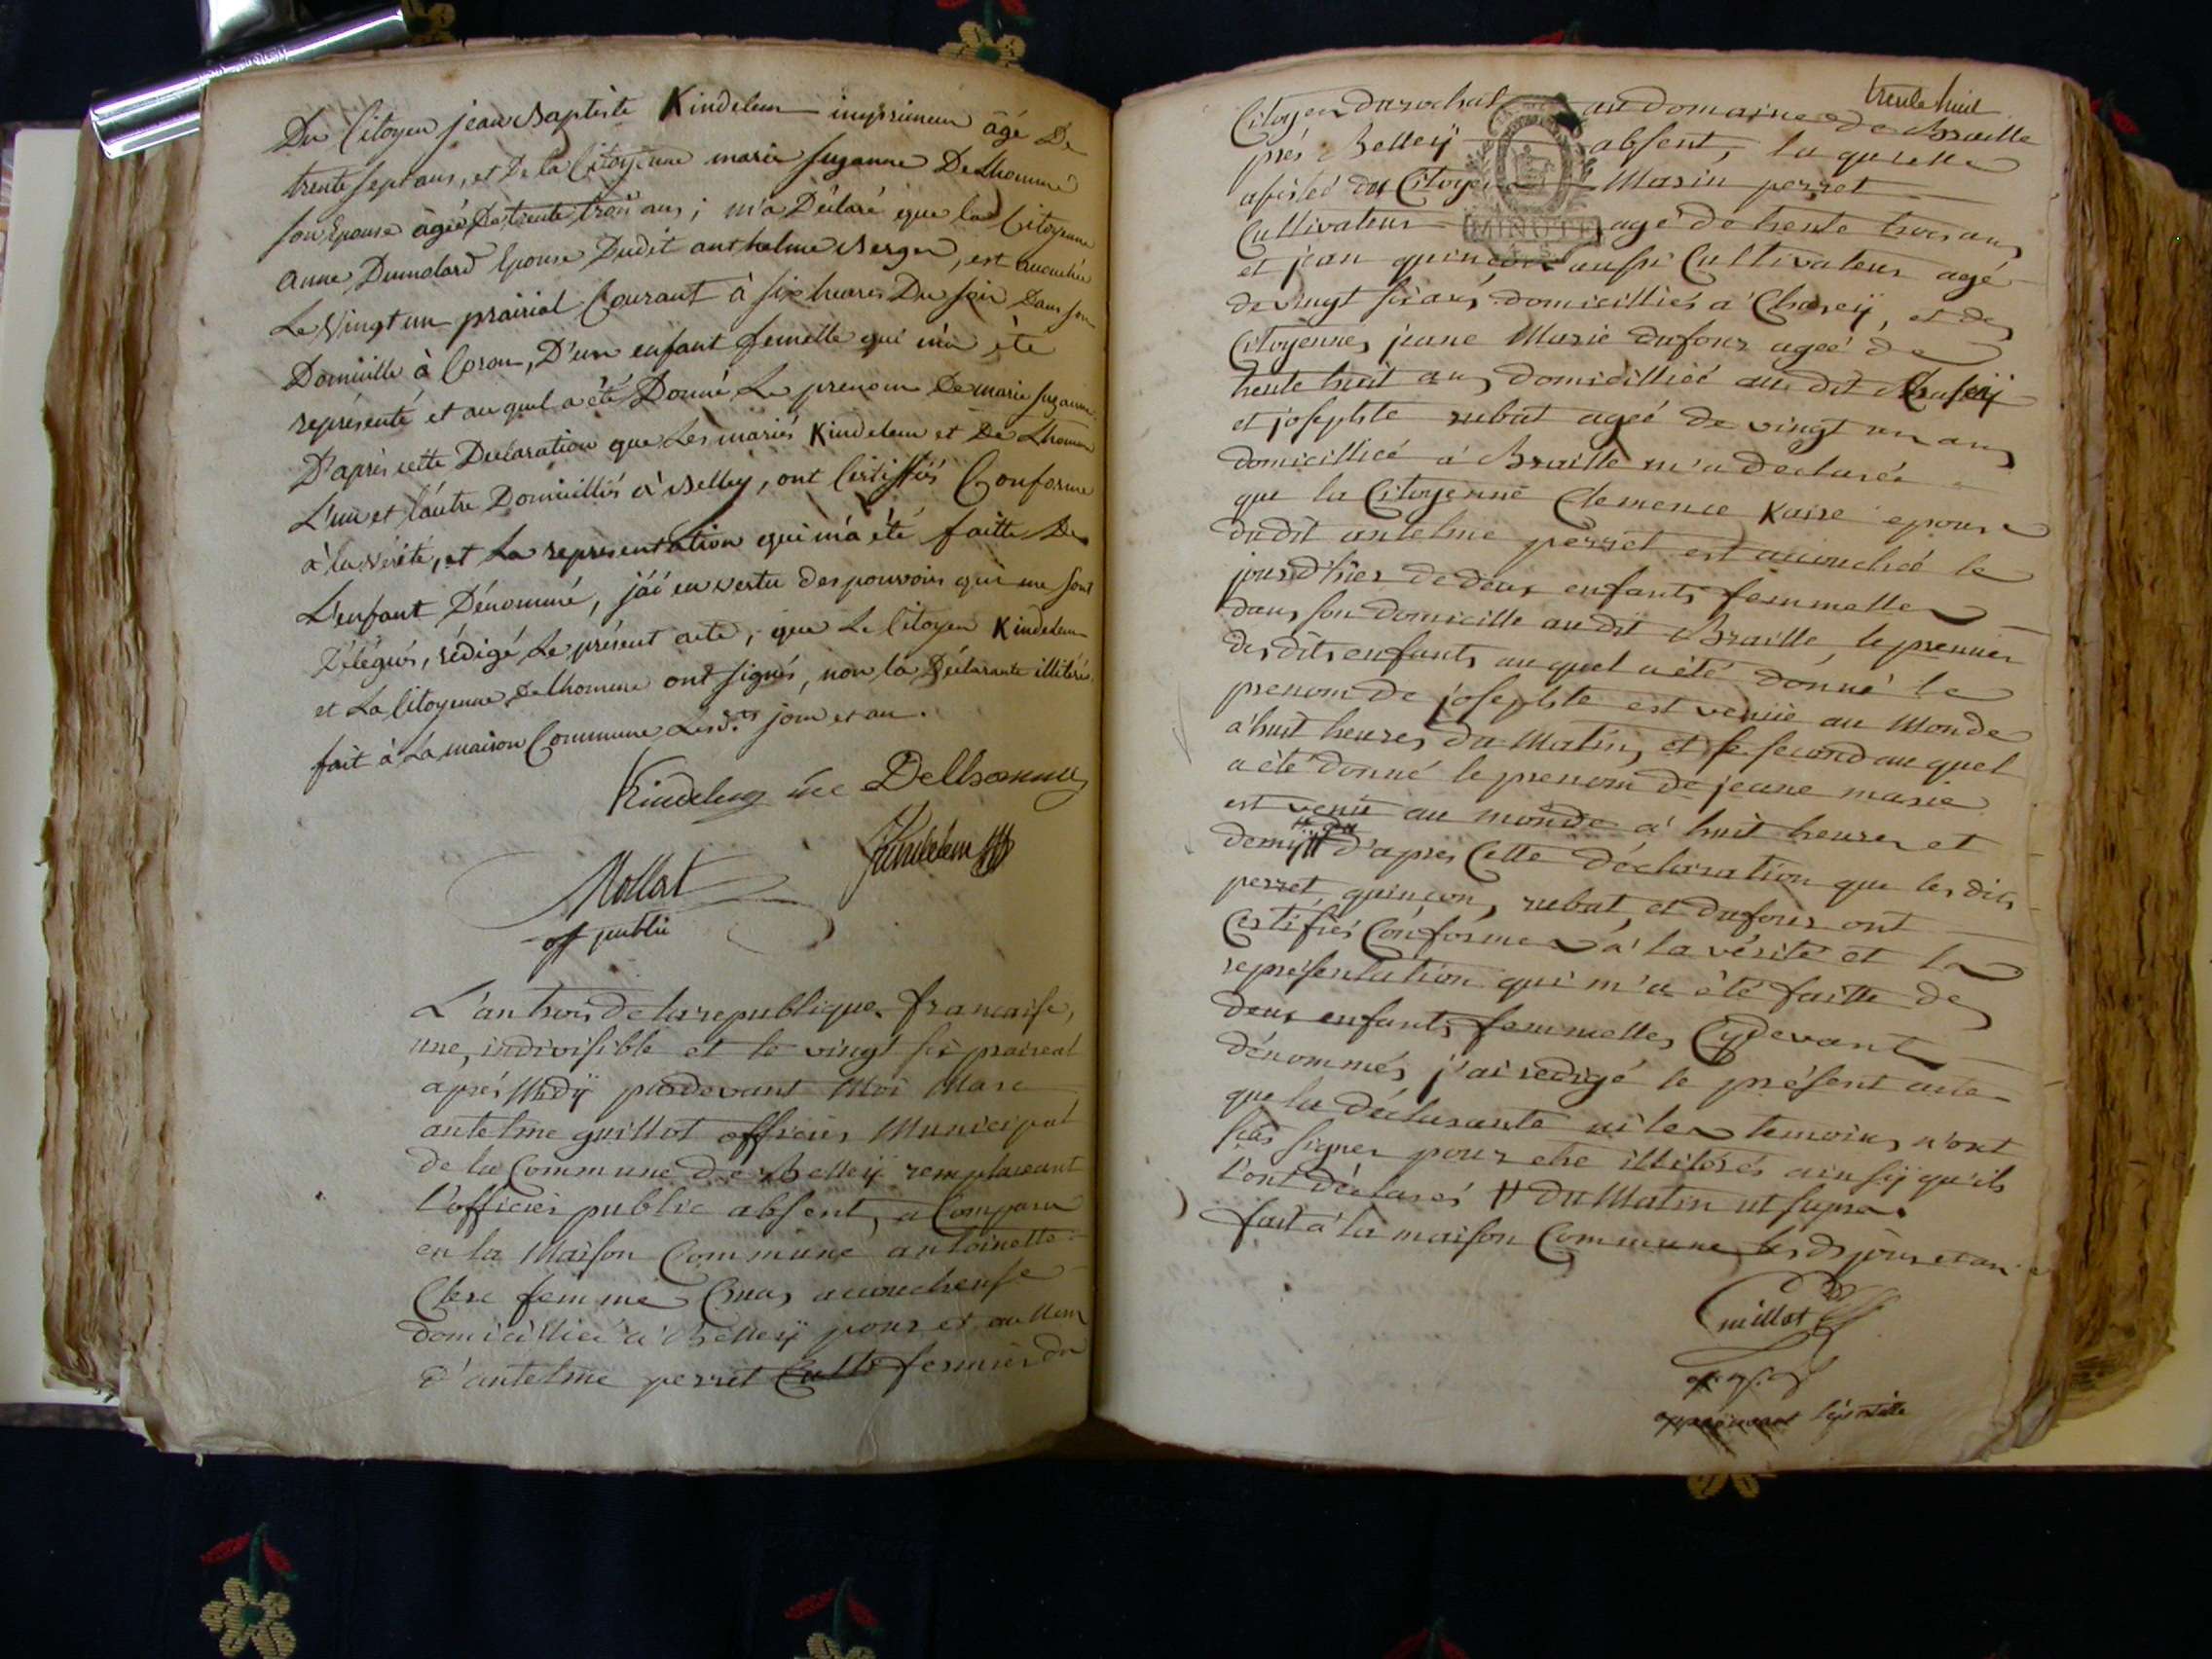 Du Citoyen jean Baptiste Kindelem imprimeur âgé De
trente sept ans, et De la Citoyenne marie suzanne Delhomme
son Epouse âgée De trente trois ans ; m'a Déclaré que la Citoyenne
anne Dumolard Epouse Dudit anthelme Berger, est accouchée
Le vingt un prairial Courant à six heures Du soir Dans son
Domicille à Coron, D'un enfant femelle qui m'a été
représenté et auquel a été Donné Le prenom De marie suzanne
D'après cette Declaration que Les mariés Kindelem et De Lhomme
L'un et l'autre Domicilliés à Belley, ont Certiffiés Conforme
à la vérité, et La representation qui m'a été faitte De
L'enfant Dénommé, j'ai en vertu des pouvoirs qui me sont
Délégués, rédigé Le présent acte, que Le Citoyen Kindelem
et La Citoyenne Delhomme ont signés, non la Déclarante illitéré.
fait à La maison Commune Lesd.ts jour et an.
Kindelem née Delhomme
Kindelem
Mollat
off public
L'an trois de la republique francaise,
une, indivisible et le vingt six prairial
après Midÿ pardevant Moi Marc
antelme guillot officier Municipal
de la Commune de Belleÿ remplacant
l'officier public absent, a Comparu
en la Maison Commune antoinette
Clerc femme Cruas accoucheuse
domicilliée a Belleÿ pour et au Nom
d'antelme perret fermier du
trente huit
Citoyen Darochat au domaine de Braille
près Belleÿ absent, la quelle
assistée du Citoyen Marin perret
Cultivateur agé de trente trois ans
et jean quinçon aussi Cultivateur agé
de vingt six ans domicilliés a Chaseÿ, et des
Citoyennes jeane Marie dufour ageé de
trente huit ans domicilliéé au dit Chaseÿ
et josephte rubat ageé de vingt un ans
domicilliéé a Braille m'a declaréé
que la Citoyenne Clemence Kaire epouse
dudit antelme perret est accouchéé le
jour d'hier de deux enfants femmelles
dans son domicille au dit Braille, le premier
des dits enfants auquel a été donné le
prenom de josephte est venüe au Monde
a huit heures du Matin, et le second auquel
a été donné le prenom de jeane marie
est venüe au monde a huit heures et
demy # d'apres Cette déclaration que les dits
perret, quinçon, rubat, et dufour ont
Certifiés Conforme a la vérité et la
representation qui m'a été faitte des
deux enfants femmelles Cydevant
dénommés, j'ai redigé le présent acte
que la déclarante ni les temoins n'ont
scus signer pour etre illitérés ainsÿ qu'ils
l'ont déclarés # du Matin ut supra.
fait a la maison Commune les ds jour et an
MINUTE
Guillot
approuvant l'apostille